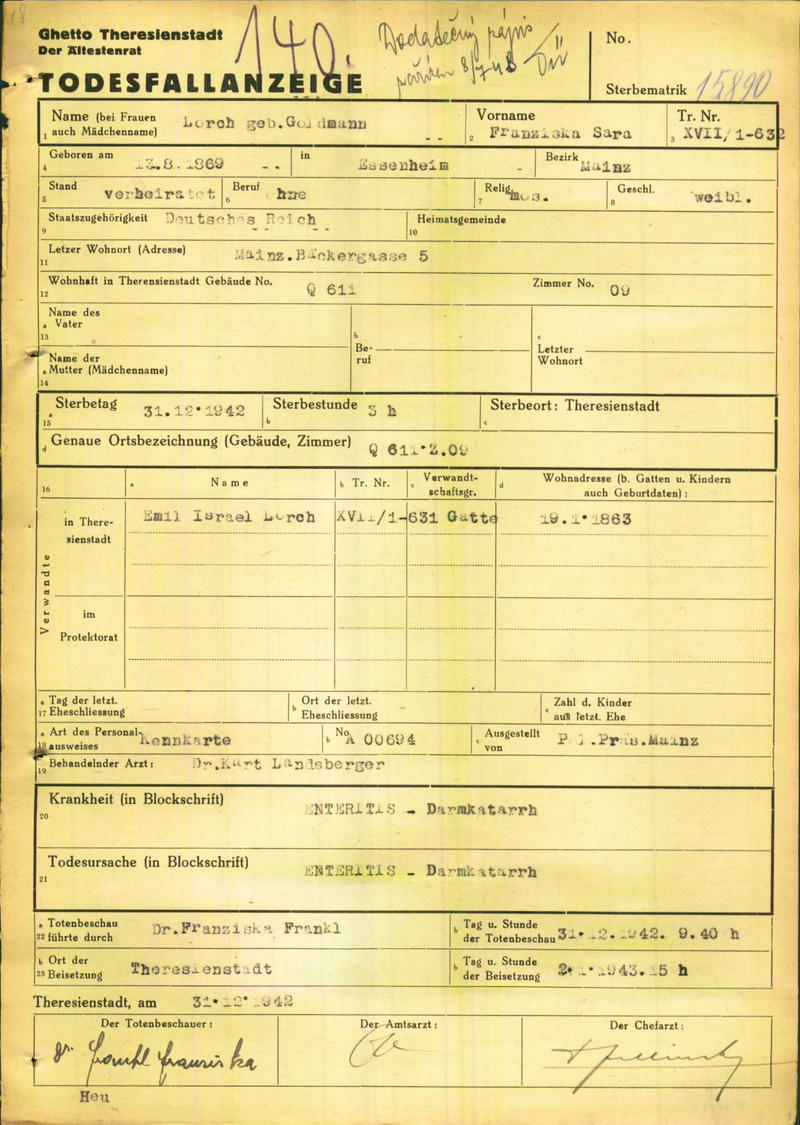 Ghetto Theresienstadt
Der Ältestenrat
140.
Dodatečný zápis
No.
TODESFALLANZEIGE
Sterbematrik 15890
Name (bei Frauen auch Mädchenname) 1 Lorch geb.Goldmann - -
Vorname 2 Franziska Sara
Tr. Nr. 3 XVII/1-632
Geboren am 4 13.8.1869 - -
in Essenheim -
Bezirk Mainz
Stand 5 verheiratet
Beruf 6 ohne
Relig. 7 mos.
Geschl. 8 weibl.
Staatszugehörigkeit 9 Deutsches Reich
Heimatsgemeinde 10
Letzer Wohnort (Adresse) 11 Mainz.Bäckergasse 5
Wohnhaft in Theresienstadt Gebäude No. 12 Q 611
Zimmer No. 09
Name des
a Vater
13
Name der
a Mutter (Mädchenname)
14
b Beruf
c Letzter Wohnort
a Sterbetag 15 31.12.1942
Sterbestunde b 3 h
Sterbeort: Theresienstadt c
d Genaue Ortsbezeichnung (Gebäude, Zimmer) Q 611.Z.09
16 a Name
b Tr. Nr.
c Verwandt-
schaftsgr.
d Wohnadresse (b. Gatten u. Kindern
auch Geburtdaten) :
Verwandte
in There-
sienstadt
Emil Israel Lorch XVII/1-631 Gatte 19.1.1863
im
Protektorat
a Tag der letzt.
17 Eheschliessung
b Ort der letzt.
Eheschliessung
c Zahl d. Kinder
aus letzt. Ehe
a Art des Personal-
18 ausweises Kennkarte
b No. A 00694
c Ausgestellt
von Pol.Präs.Mainz
19 Behandelnder Arzt: Dr.Kurt Landsberger
Krankheit (in Blockschrift)
20 ENTERITIS - Darmkatarrh
Todesursache (in Blockschrift)
21 ENTERITIS - Darmkatarrh
a Totenbeschau
22 führte durch Dr.Franziska Frankl
b Tag u. Stunde
der Totenbeschau 31.12.1942. 9.40 h
b Ort der
23 Beisetzung Theresienstadt
b Tag u. Stunde
der Beisetzung 2.1.1943.15 h
Theresienstadt, am 31.12.1942
Der Totenbeschauer :
Der Amtsarzt :
Der Chefarzt :
dr Frankl Franziska
Heu